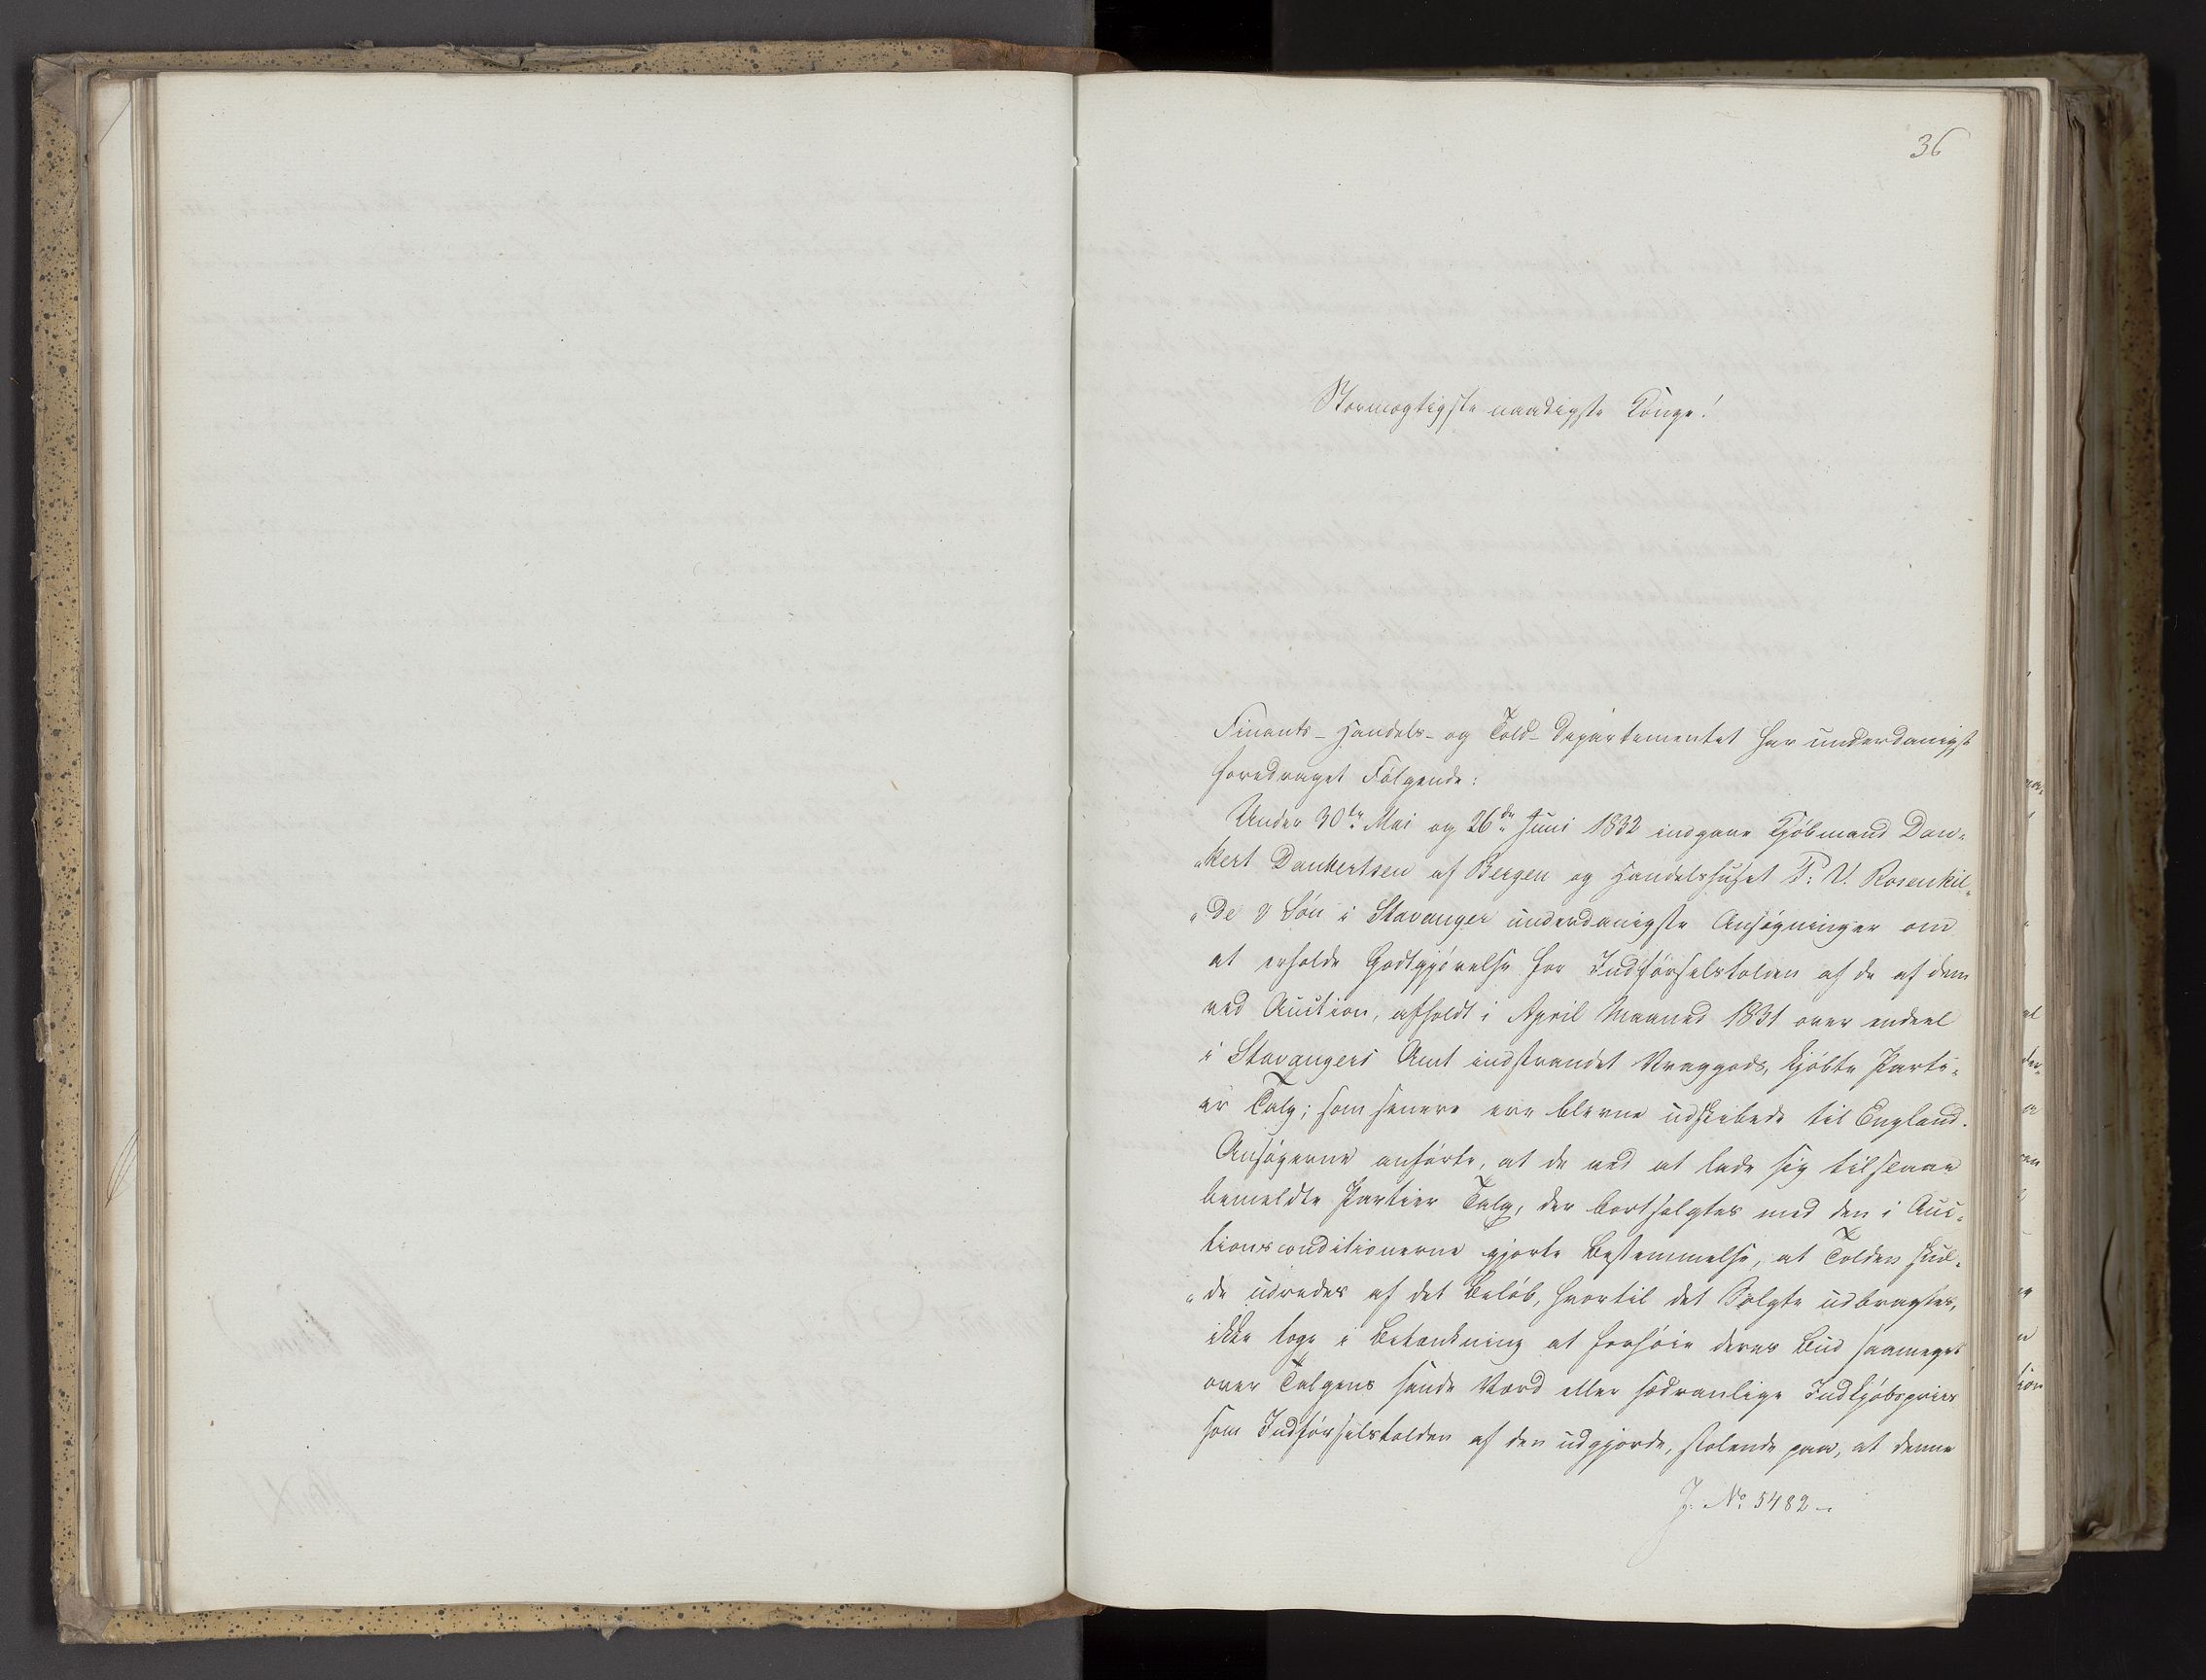 36
Stormægtigste naadigste Konge!
Finants- Handels- og Told-Departementet har underdanigst
foredraget Følgende:
Under 30te Mai og 26de Juni 1832 indgave Kjøbmand Dan-
"kert Dankertsen af Bergen og Handelshuset P: V. Rosenkil-
"de & Søn i Stavanger underdanigste Ansøgninger om
at erholde Godtgjørelse for Indførselstolden af de af dem
ved Auction, afholdt i April Maaned 1831 over endeel
i Stavangers Amt indstrandet Vraggods, kjøbte Parti-
er Talg; som senere ere blevne udskibede til England.
Ansøgerne anførte, at de ved at lade sig tilslaae
bemeldte Partier Talg, der bortsolgtes med den i Auc-
tionsconditionerne gjorte Bestemmelse, at Tolden skul-
"de udredes af det Beløb, hvortil det Solgte udbragtes,
ikke toge i Betænkning at forhøie deres Bud saameget
over Talgens sande Værd eller sædvanlige Indkjøbspriis
som Indførselstolden af den udgjorde, stolende paa, at denne
J. No 5482-